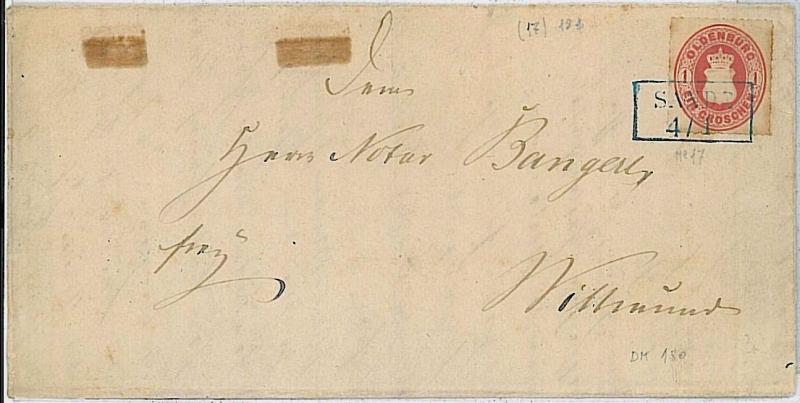 (17) 184
OLDENBURG
1 1
EIN GROSCHEN
SANDE
4/1
Dem
Herrn Notar Bangert
frey
Wittmund
Me 17
DM 180